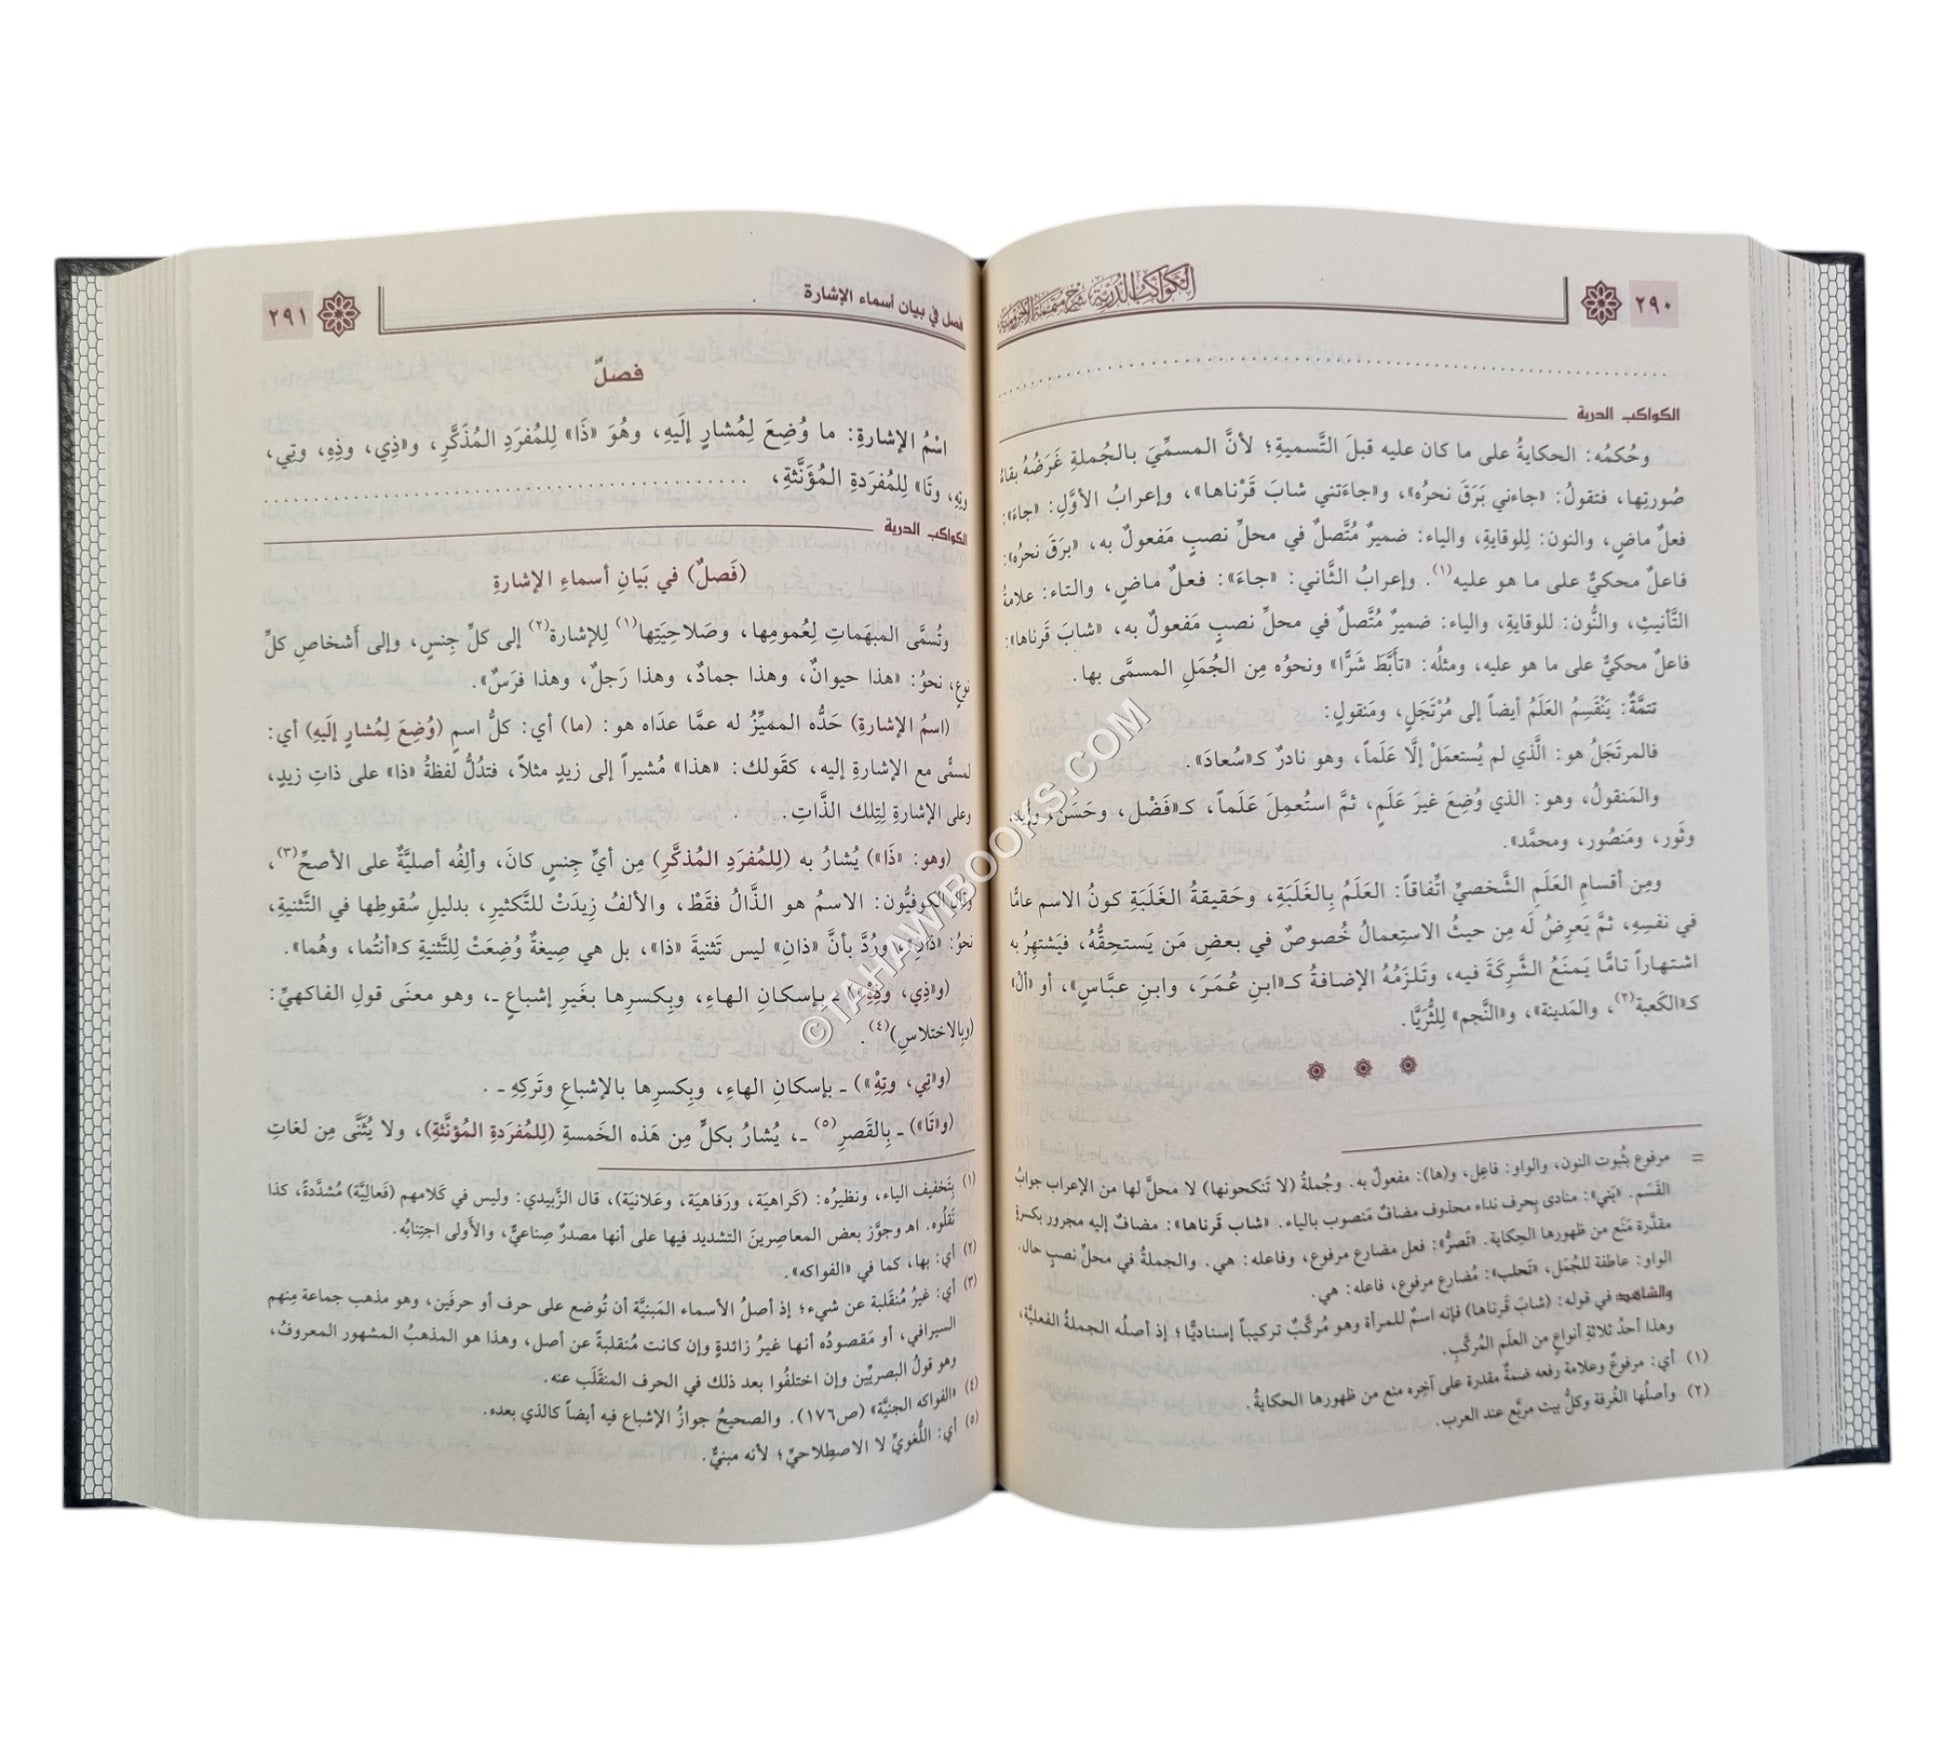 ٢٩٠
الكواكب الدرية شرح متممة الآجرومية
الكواكب الدرية
وحُكمُه: الحكايةُ على ما كان عليه قبلَ التَّسميةِ؛ لأنَّ المسمِّيَ بالجُملةِ غَرَضُهُ بقاءُ
صُورتِها، فتقولُ: «جاءني بَرَقَ نحرُه»، و«جاءَتني شابَ قَرْناها»، وإعرابُ الأوَّلِ: «جاءَ»:
فعلٌ ماضٍ، والنون: لِلوقايةِ، والياء: ضميرٌ مُتَّصلٌ في محلِّ نصبٍ مَفعولٌ به، «برَقَ نحرُه»:
فاعلٌ محكيٌّ على ما هو عليه(١). وإعرابُ الثَّاني: «جاءَ»: فعلٌ ماضٍ، والتاء: علامةُ
التَّأنيثِ، والنُّون: للوقايةِ، والياء: ضميرٌ مُتَّصلٌ في محلِّ نصبٍ مَفعولٌ به، «شابَ قَرناها»:
فاعلٌ محكيٌّ على ما هو عليه، ومثلُه: «تأبَّطَ شَرًّا» ونحوُه مِن الجُمَلِ المسمَّى بها.
تتمَّةٌ: يَنْقَسِمُ العَلَمُ أيضاً إلى مُرْتَجَلٍ، ومَنقولٍ:
فالمرتَجَلُ هو: الَّذي لم يُستعمَلْ إلَّا عَلَماً، وهو نادرٌ كـ«سُعادَ».
والمَنقولُ، وهو: الذي وُضِعَ غيرَ عَلَمٍ، ثمَّ استُعمِلَ عَلَماً، كـ«فَضْل، وحَسَن، وأسَد،
وثَور، ومَنصُور، ومحمَّد».
ومِن أقسامِ العَلَمِ الشَّخصيِّ اتِّفاقاً: العَلَمُ بِالغَلَبَةِ، وحَقيقةُ الغَلَبَةِ كونُ الاسم عامًّا
في نفسِهِ، ثمَّ يَعرِضُ لَه مِن حيثُ الاستِعمالُ خُصوصٌ في بعضِ مَن يَستحِقُّهُ، فيَشتهِرُ به
اشتهاراً تامًّا يَمنَعُ الشَّرِكَةَ فيه، وتَلزَمُهُ الإضافةُ كـ«ابنِ عُمَرَ، وابنِ عبَّاسٍ»، أو «أل»
كـ«الكَعبة(٢)، والمَدينة»، و«النَّجم» لِلثُّرَيَّا.
= مرفوع بثُبوت النون، والواو: فاعِل، و(ها): مفعولٌ به. وجُملةُ (لا تَنكحونها) لا محلَّ لها من الإعراب جوابُ
القَسَم. «بَني»: منادى بِحرف نداء محذوف مضافٌ مَنصوب بالياء. «شاب قَرناها»: مضافٌ إليه مجرور بكسرة
مقدَّرة مَنَع من ظهورها الحكاية. «تَصرُّ»: فعل مضارع مرفوع، وفاعله: هي. والجملةُ في محلِّ نصبٍ حال.
الواو: عاطفة للجُمَل، «تَحلب»: مُضارع مرفوع، فاعله: هي.
والشاهد: في قوله: (شابَ قَرناها) فإنه اسمٌ للمرأة وهو مُركَّبٌ تركيباً إسناديًّا؛ إذ أصلُه الجملةُ الفعليَّة،
وهذا أحدُ ثلاثةِ أنواعٍ من العلَم المُركَّبِ.
(١) أي: مرفوعٌ وعلامة رفعه ضمةٌ مقدرة على آخِره منع من ظهورها الحكايةُ.
(٢) وأصلُها الغُرفة وكلُّ بيت مربَّع عند العرب.
فصل في بيان أسماء الإشارة
٢٩١
فصلٌ
اسْمُ الإشارةِ: ما وُضِعَ لِمُشارٍ إلَيهِ، وهُوَ «ذَا» لِلمُفرَدِ المُذَكَّرِ، و«ذِي، وذِهِ، وتِي،
وتِهِ، وتَا» لِلمُفرَدةِ المُؤَنَّثةِ،
الكواكب الدرية
(فَصلٌ) في بَيانِ أسماءِ الإشارةِ
وتُسمَّى المبهَماتِ لِعُمومِها، وصَلاحِيَتِها(١) لِلإشارة(٢) إلى كلِّ جِنسٍ، وإلى أَشخاصِ كلِّ
نوعٍ، نحوُ: «هذا حيوانٌ، وهذا جمادٌ، وهذا رَجلٌ، وهذا فرَسٌ».
(اسمُ الإشارةِ) حَدُّه المميِّزُ له عمَّا عدَاه هو: (ما) أي: كلُّ اسمٍ (وُضِعَ لِمُشارٍ إلَيهِ) أي:
لمسمًّى مع الإشارةِ إليه، كقَولك: «هذا» مُشيراً إلى زيدٍ مثلاً، فتدُلُّ لفظةُ «ذا» على ذاتِ زيدٍ،
وعلى الإشارةِ لِتِلك الذَّاتِ.
(وهو: «ذَا») يُشارُ به (لِلمُفرَدِ المُذكَّرِ) مِن أيِّ جِنسٍ كانَ، وألِفُه أصليَّةٌ على الأصحِّ(٣)،
وقال الكوفيُّون: الاسمُ هو الذَّالُ فقَطْ، والألفُ زِيدَتْ للتَّكثيرِ، بدليلِ سُقوطِها في التَّثنيةِ،
نحوُ: «ذانِ»، ورُدَّ بأنَّ «ذانِ» ليس تَثنيةَ «ذا»، بل هي صِيغةٌ وُضِعَتْ لِلتَّثنيةِ كـ«أنتُما، وهُما».
(و«ذِي، وذِهْ») ـ بإسكانِ الهاءِ، وبِكسرِها بغَيرِ إشباعٍ ـ، وهو معنَى قولِ الفاكهيِّ:
(وبِالاختلاسِ)(٤).
(و«تِي، وتِهْ») ـ بإسكانِ الهاءِ، وبِكسرِها بالإشباعِ وتَركِهِ ـ.
(و«تَا») ـ بِالقَصرِ(٥) ـ، يُشارُ بكلٍّ مِن هَذه الخَمسةِ (لِلمُفرَدةِ المُؤنَّثةِ)، ولا يُثَنَّى مِن لغاتِ
(١) بِتَخفيف الياء، ونظيرُه: (كَراهيَة، ورَفاهيَة، وعَلانيَة)، قال الزَّبيدي: وليس في كَلامهم (فَعالِيَّة) مُشدَّدةً، كذا
نَقلُوه. اهـ وجوَّز بعض المعاصِرينَ التشديد فيها على أنها مصدرٌ صِناعيٌّ، والأَولى اجتِنابُه.
(٢) أي: بها، كما في «الفواكه».
(٣) أي: غيرُ مُنقَلبة عن شيء؛ إذ أصلُ الأسماء المَبنيَّة أن تُوضع على حرف أو حرفَين، وهو مذهب جماعة مِنهم
السيرافي، أو مَقصودُه أنها غيرُ زائدةٍ وإن كانت مُنقلبةً عن أصل، وهذا هو المذهبُ المشهور المعروفُ،
وهو قولُ البصريِّين وإن اختلفُوا بعد ذلك في الحرف المنقَلَب عنه.
(٤) «الفواكه الجنيَّة» (ص١٧٦). والصحيحُ جوازُ الإشباع فيه أيضاً كالذي بعده.
(٥) أي: اللُّغويِّ لا الاصطِلاحيِّ؛ لأنه مبنيٌّ.
©TAHAWIBOOKS.COM